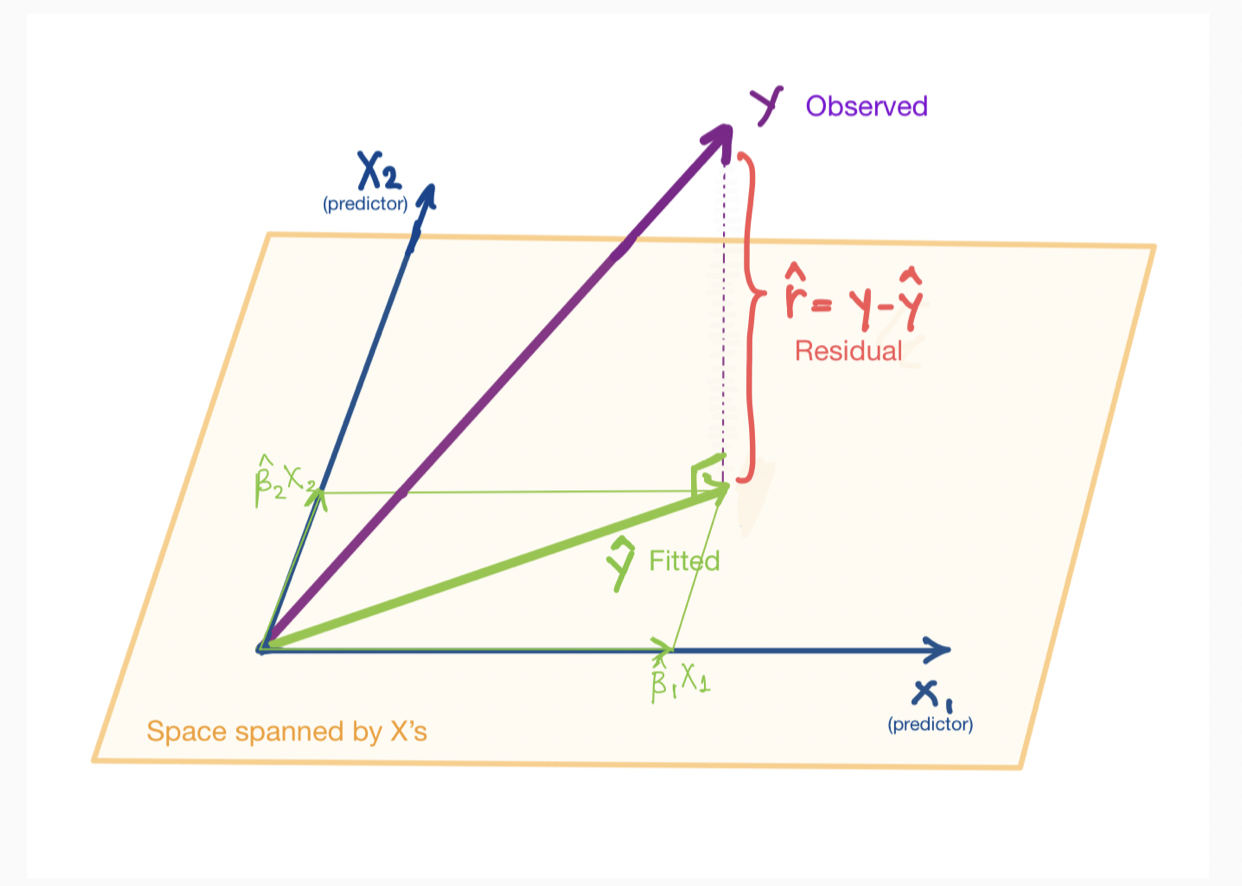 y Observed
X2
(predictor)
r̂ = y-ŷ
Residual
β̂₂X₂
ŷ Fitted
β̂₁X₁
X₁
(predictor)
Space spanned by X's